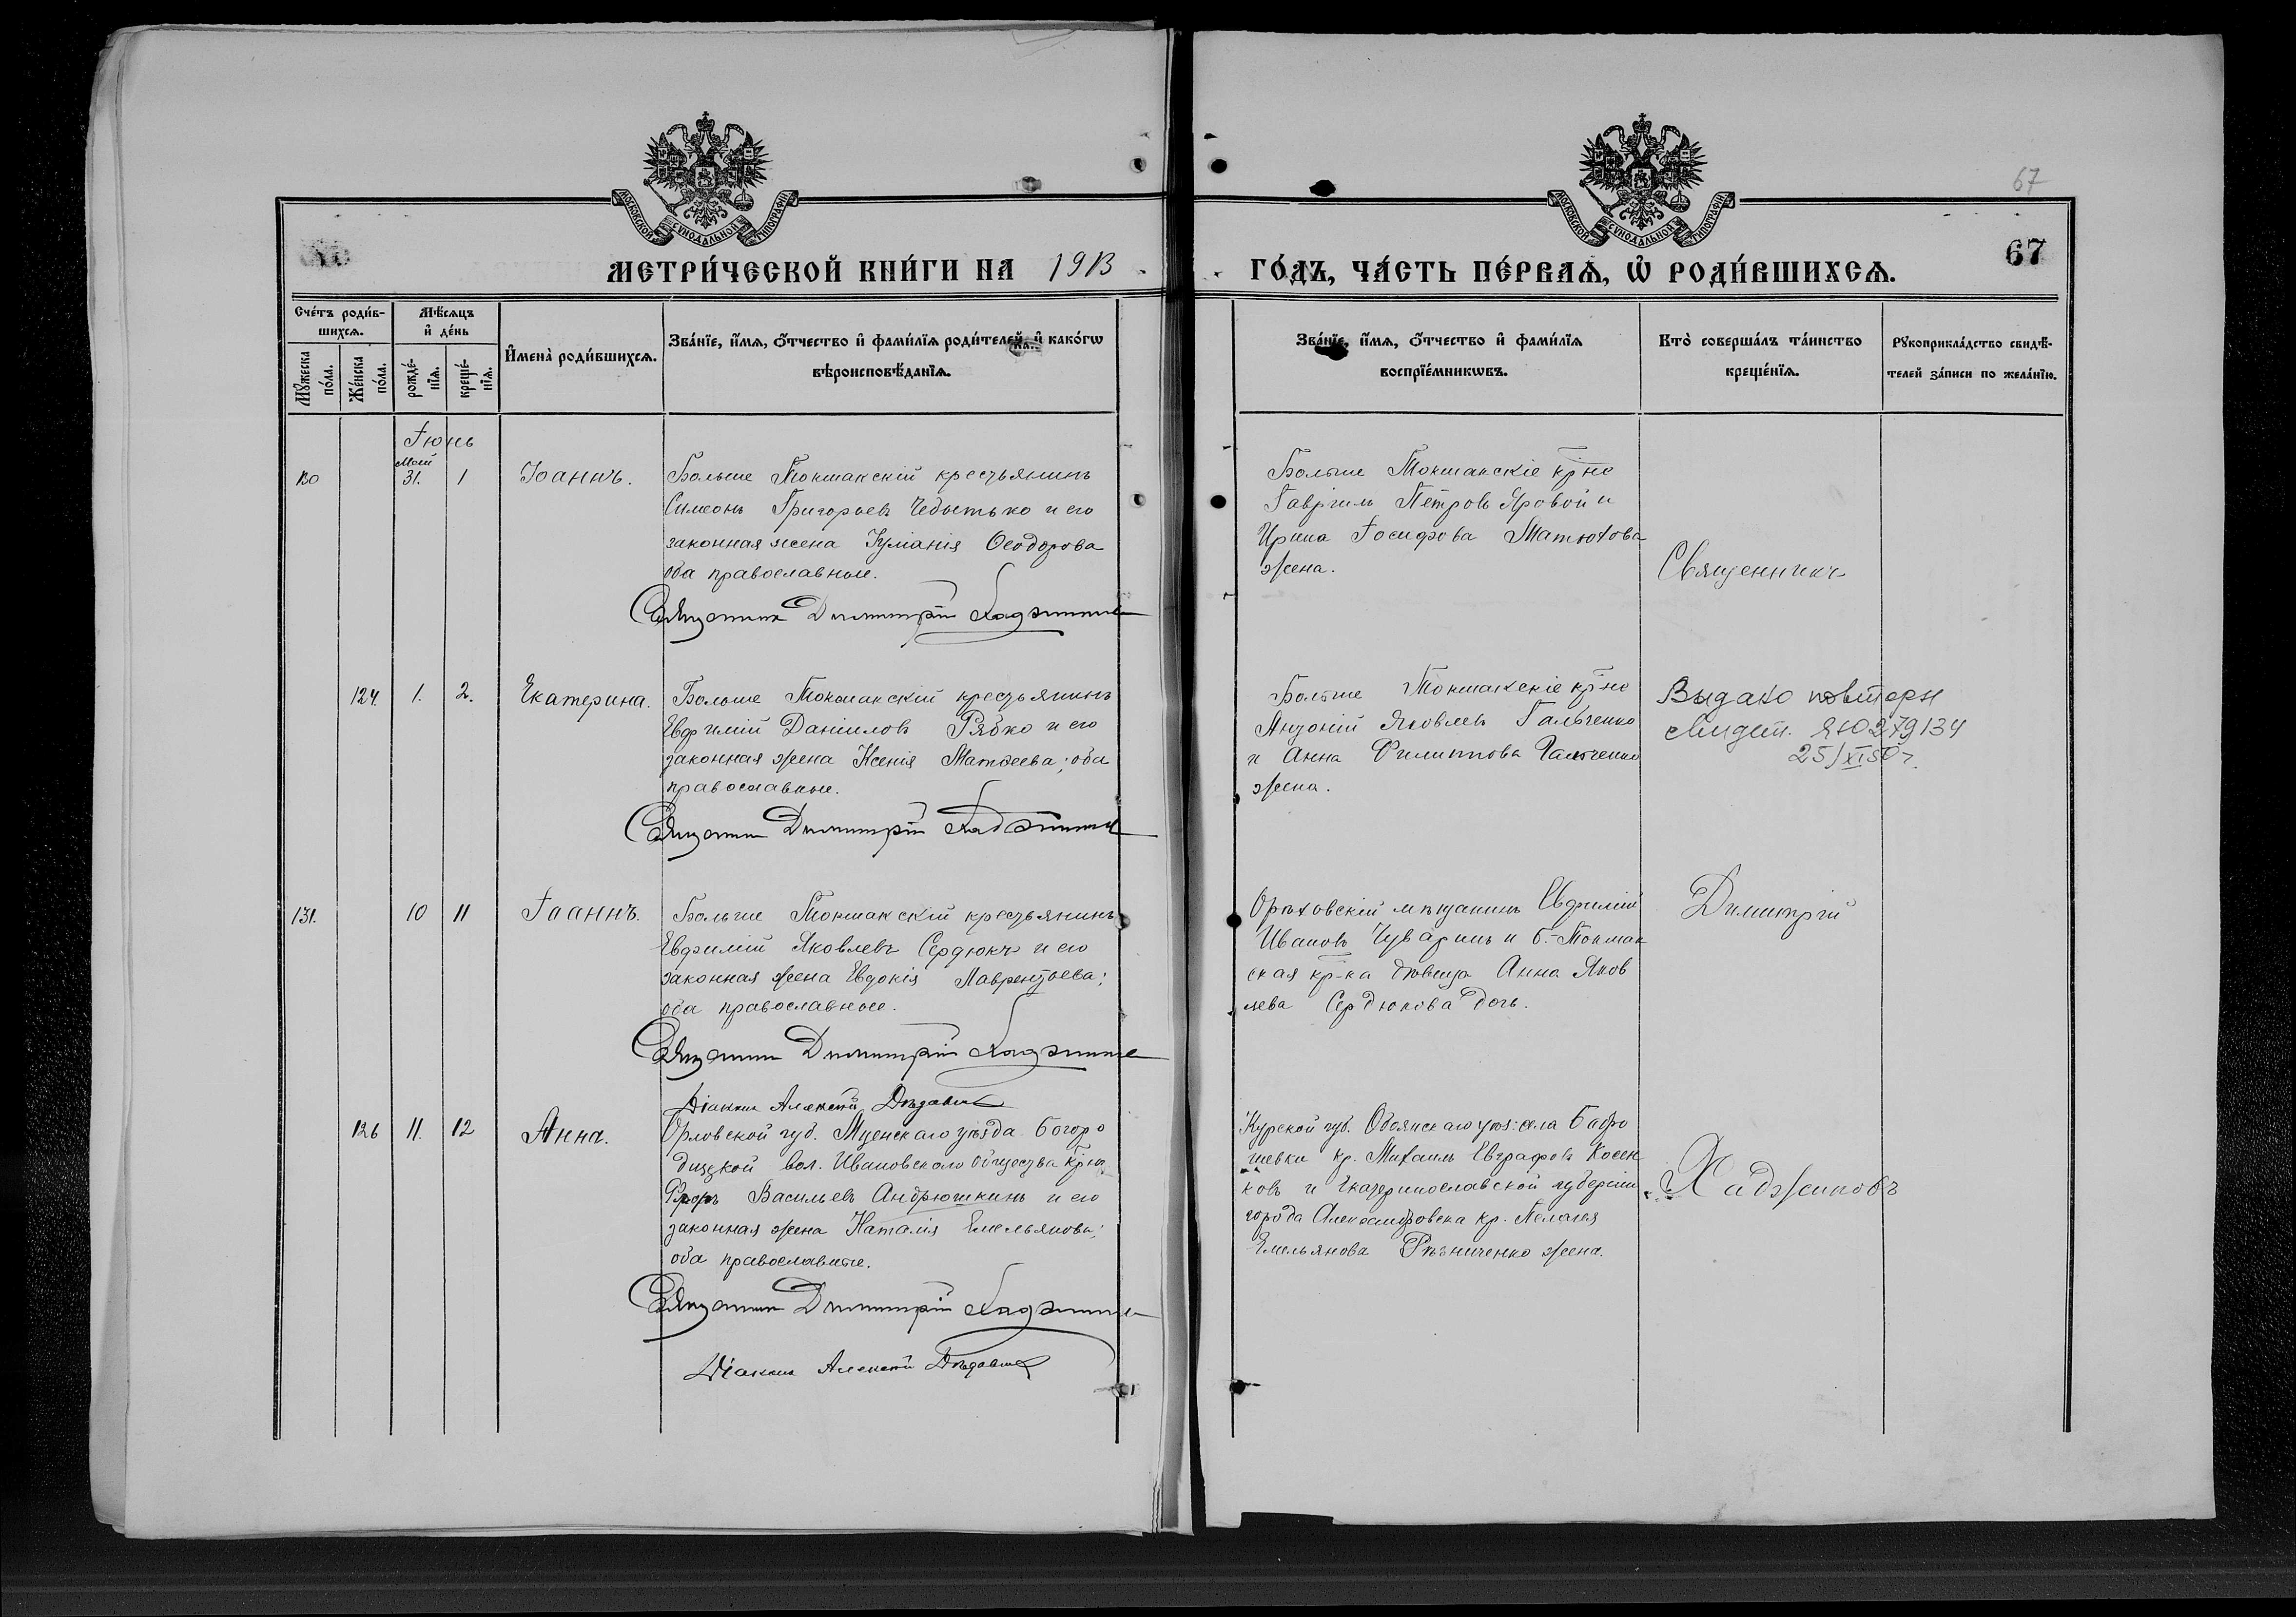 67
67
МОСКОВСКОЙ СѴНОДАЛЬНОЙ ТИПОГРАФІИ
МОСКОВСКОЙ СѴНОДАЛЬНОЙ ТИПОГРАФІИ
МЕТРИ́ЧЕСКОЙ КНИ́ГИ НА 1913
ГО́ДЪ, ЧА́СТЬ ПЕ́РВАѦ, Ѡ҆ РОДИ́ВШИХСѦ.
Сче́тъ роди́в-
шихсѧ.
Мꙋ́жеска по́ла.
Же́нска по́ла.
Мѣ́сѧцъ
и҆ де́нь
рожде́-нїѧ.
креще́-нїѧ.
И҆мена̀ роди́вшихсѧ.
Зва́нїе, и҆́мѧ, ѻ҆́тчество и҆ фами́лїѧ роди́телей, и҆ како́гѡ
вѣроисповѣ́данїѧ.
Зва́нїе, и҆́мѧ, ѻ҆́тчество и҆ фами́лїѧ
воспрїе́мникѡвъ.
Кто̀ соверша́лъ та́инство
креще́нїѧ.
Рꙋкоприкла́дство свидѣ́-
телей за́писи по жела́нїю.
Іюнь
Маи
130 31. 1 Іоаннъ.
Больше Токмакскій крестьянинъ
Симеонъ Григорьевъ и его
законная жена Іуліанія Ѳеодорова
оба православные.
Священникъ Димитрій Хаджиновъ
Больше Токмакскіе кр-не
Гавріилъ Петровъ Яровой и
Ирина Іосифова Матюхова
жена.
Священникъ
124. 1. 2. Екатерина.
Больше Токмакскій крестьянинъ
Евфимій Даніиловъ Рябко и его
законная жена Ксенія Матѳеева; оба
православные.
Священникъ Димитрій Хаджиновъ
Больше Токмакскіе кр-не
Антоній Яковлевъ Гальченко
и Анна Филиппова Гальченко
жена.
Видако повторн
свидет. ЯЮ 279134
25/XI 50 г.
131. 10 11 Іоаннъ.
Больше Токмакскій крестьянинъ
Евфимій Яковлевъ Сердюкъ и его
законная жена Евдокія Лаврентьева;
оба православные.
Священникъ Димитрій Хаджиновъ
Діаконъ Алексій
Орѣховскій мѣщанинъ Евфимій
Ивановъ Чуваринъ и Б.-Токмак
ская кр-ка дѣвица Анна Яков
лева Сердюкова дочь.
Димитрій
126 11. 12 Анна.
Орловской губ. Мценскаго уѣзда Богоро
дицкой вол. Ивановскаго общества кр-нъ
Ѳедоръ Васильевъ Андрюшкинъ и его
законная жена Наталія Емельянова;
оба православные.
Священникъ Димитрій Хаджиновъ
Діаконъ Алексій
Курской губ. Обоянскаго уѣз: села
шевки кр. Михаилъ Евграфовъ Косен
ковъ и Екатеринославской губерніи
города Александровска кр. Пелагія
Емельянова Рѣзниченко жена.
Хаджиновъ